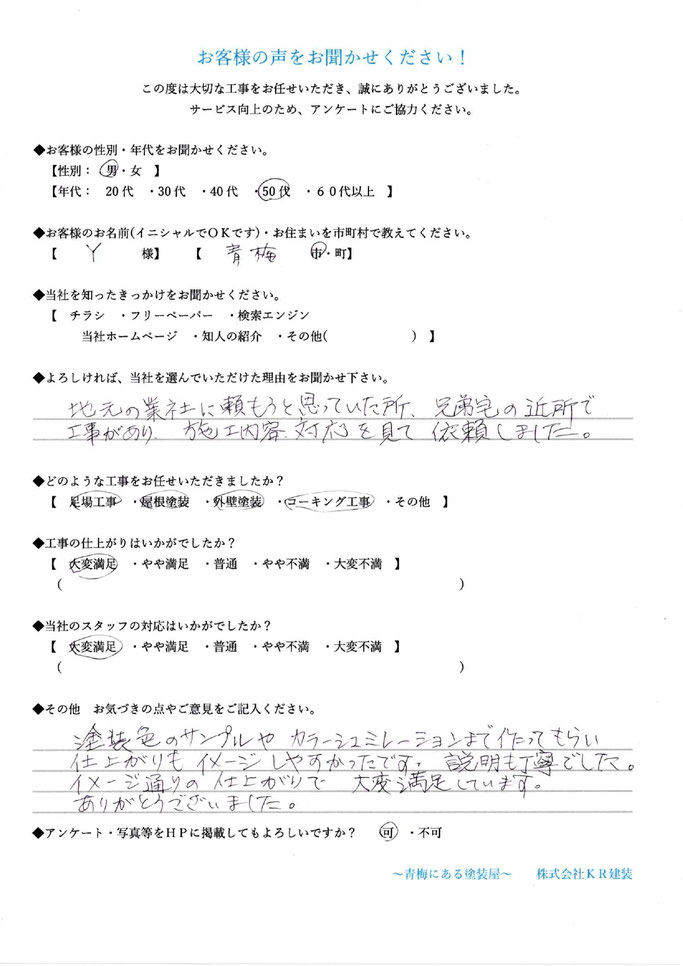 お客様の声をお聞かせください！
この度は大切な工事をお任せいただき、誠にありがとうございました。
サービス向上のため、アンケートにご協力ください。
◆お客様の性別・年代をお聞かせください。
【性別： 男・女 】
【年代： 20代 ・30代 ・40代 ・50代 ・６０代以上 】
◆お客様のお名前(イニシャルでＯＫです)・お住まいを市町村で教えてください。
【 Y 様】 【 青梅 市・町】
◆当社を知ったきっかけをお聞かせください。
【 チラシ ・フリーペーパー ・検索エンジン
当社ホームページ ・知人の紹介 ・その他( ) 】
◆よろしければ、当社を選んでいただけた理由をお聞かせ下さい。
地元の業社に頼もうと思っていた所、兄弟宅の近所で
工事があり、施工内容、対応を見て依頼しました。
◆どのような工事をお任せいただきましたか？
【 足場工事 ・屋根塗装 ・外壁塗装 ・コーキング工事 ・その他 】
◆工事の仕上がりはいかがでしたか？
【 大変満足 ・やや満足 ・普通 ・やや不満 ・大変不満 】
( )
◆当社のスタッフの対応はいかがでしたか？
【 大変満足 ・やや満足 ・普通 ・やや不満 ・大変不満 】
( )
◆その他 お気づきの点やご意見をご記入ください。
塗装色のサンプルや カラーシュミレーションまで作ってもらい
仕上がりもイメージしやすかったです。説明も丁寧でした。
イメージ通りの仕上がりで 大変満足しています。
ありがとうございました。
◆アンケート・写真等をＨＰに掲載してもよろしいですか？ 可 ・不可
～青梅にある塗装屋～ 株式会社ＫＲ建装